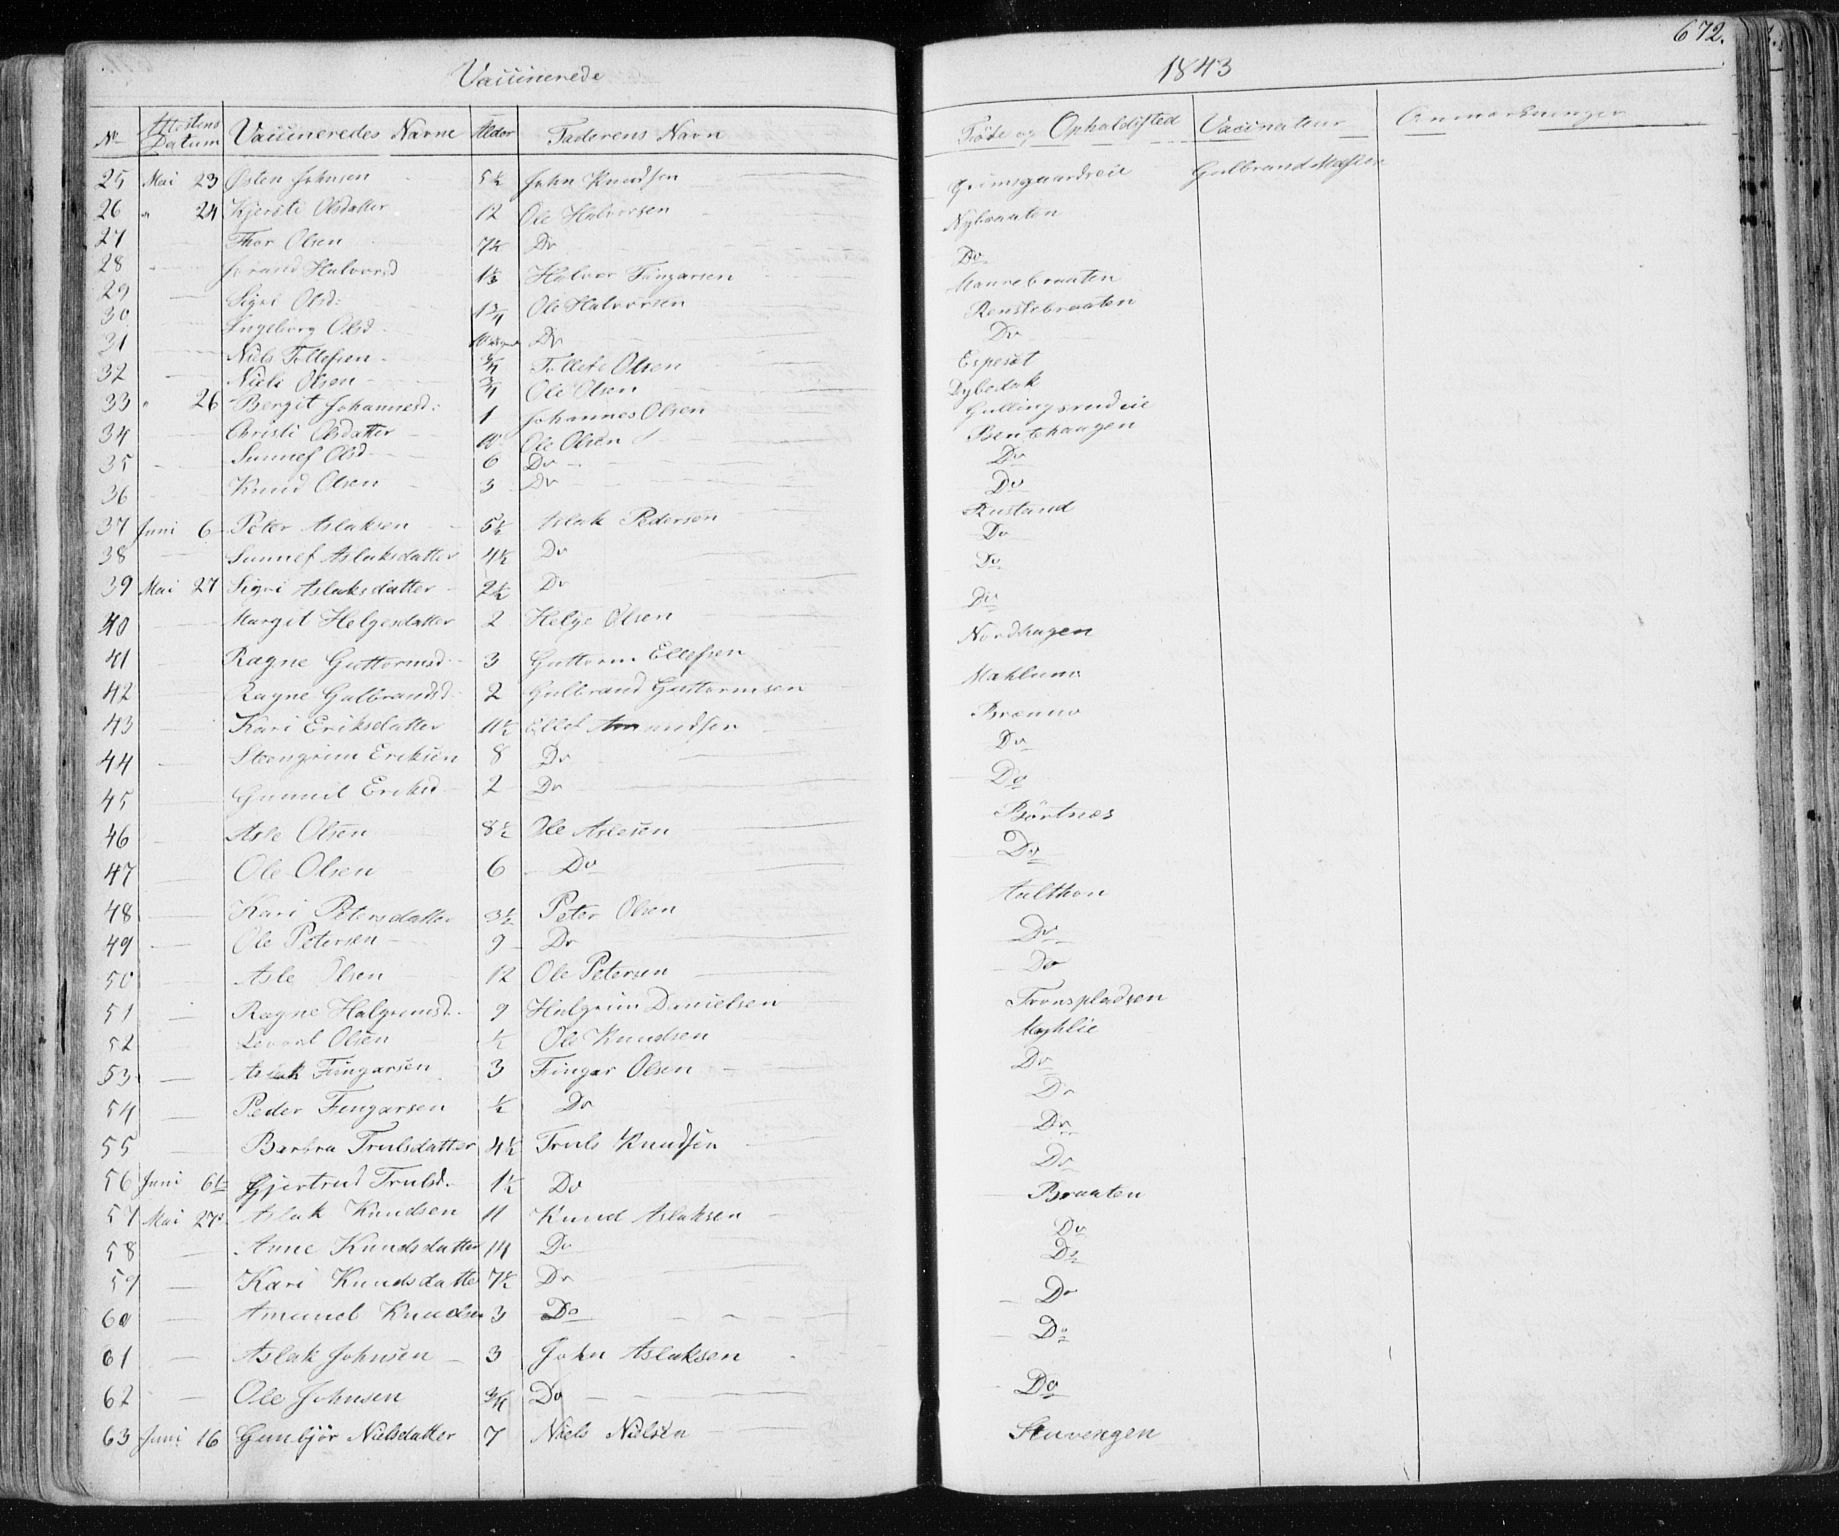 Vaccinerede 1843 672.
No Attestens Datum Vaccineredes Navne Alder Faderens Navn Føde og Opholdssted Vaccinateur Anmærkninger
25 Mai 23 Østen Johnsen 5½ John Knudsen Grimsgaardseie Gulbrand
26 " 24 Kjersti Olsdatter 12 Ole Halvorsen Nybraaten
27 Thor Olsen 7½ Do Do
28 Jørand Halvorsd 1½ Halvor Fingarsen Maurebraaten
29 Sigri Olsd: Ole Halvorsen Renslebraaten
30 Ingeborg Olsd Do Do
31 Niels Tollefsen ¾ Tollef Olsen Espeset
32 Niels Olsen ¾ Ole Olsen Dybedok
33 " 26 Bergit Johannesd: 1 Johannes Olsen Gullingsrudeie
34 Christi Olsdatter 10 Ole Olsen Bentehaugen
35 Sunnef Olsd 6 Do Do
36 Knud Olsen 3 Do Do
37 Juni 6 Peter Aslaksen 5½ Aslak Pedersen Rustand
38 Sunnef Aslaksdatter 4½ Do Do
39 Mai 27 Sigri Aslaksdatter 2½ Do Do
40 Margit Helgesdatter 2 Helge Olsen Do
41 Ragne Guttormsd. 3 Guttorm Ellefsen Nordhagen
42 Ragne Gulbrandsd. 2 Gulbrand Guttormsen Mahlum
43 Kari Eriksdatter 11½ Ellef Amundsen Brænno
44 Steengrim Eriksen 8 Do Do
45 Gunnil Eriksd 2 Do Do
46 Asle Olsen 8½ Ole Aslesen Børtnes
47 Ole Olsen 6 Do Do
48 Kari Petersdatter 3½ Peter Olsen Aalthon
49 Ole Petersen 9 Do Do
50 Asle Olsen 12 Ole Petersen Do
51 Ragne Halgrimsd. 9 Halgrim Danielsen Tronspladsen
52 Levord Olsen ½ Ole Knudsen Myhlie
53 Aslak Fingarsen 3 Fingar Olsen Do
54 Peder Fingarsen ½ Do Do
55 Barbra Trulsdatter 4½ Truls Knudsen Do
56 Juni 6te Gjertrud Trulsd. 1½ Do Do
57 Mai 27 Aslak Knudsen 11 Knud Aslaksen Braaten
58 Anne Knudsdatter 14 Do Do
59 Kari Knudsdatter 7½ Do Do
60 Amund Knudsen 3 Do Do
61 Aslak Johnsen 3 John Aslaksen Do
62 Ole Johnsen ¾ Do Do
63 Juni 16 Gunbjør Nielsdatter 7 Niels Nielsen Stavengen